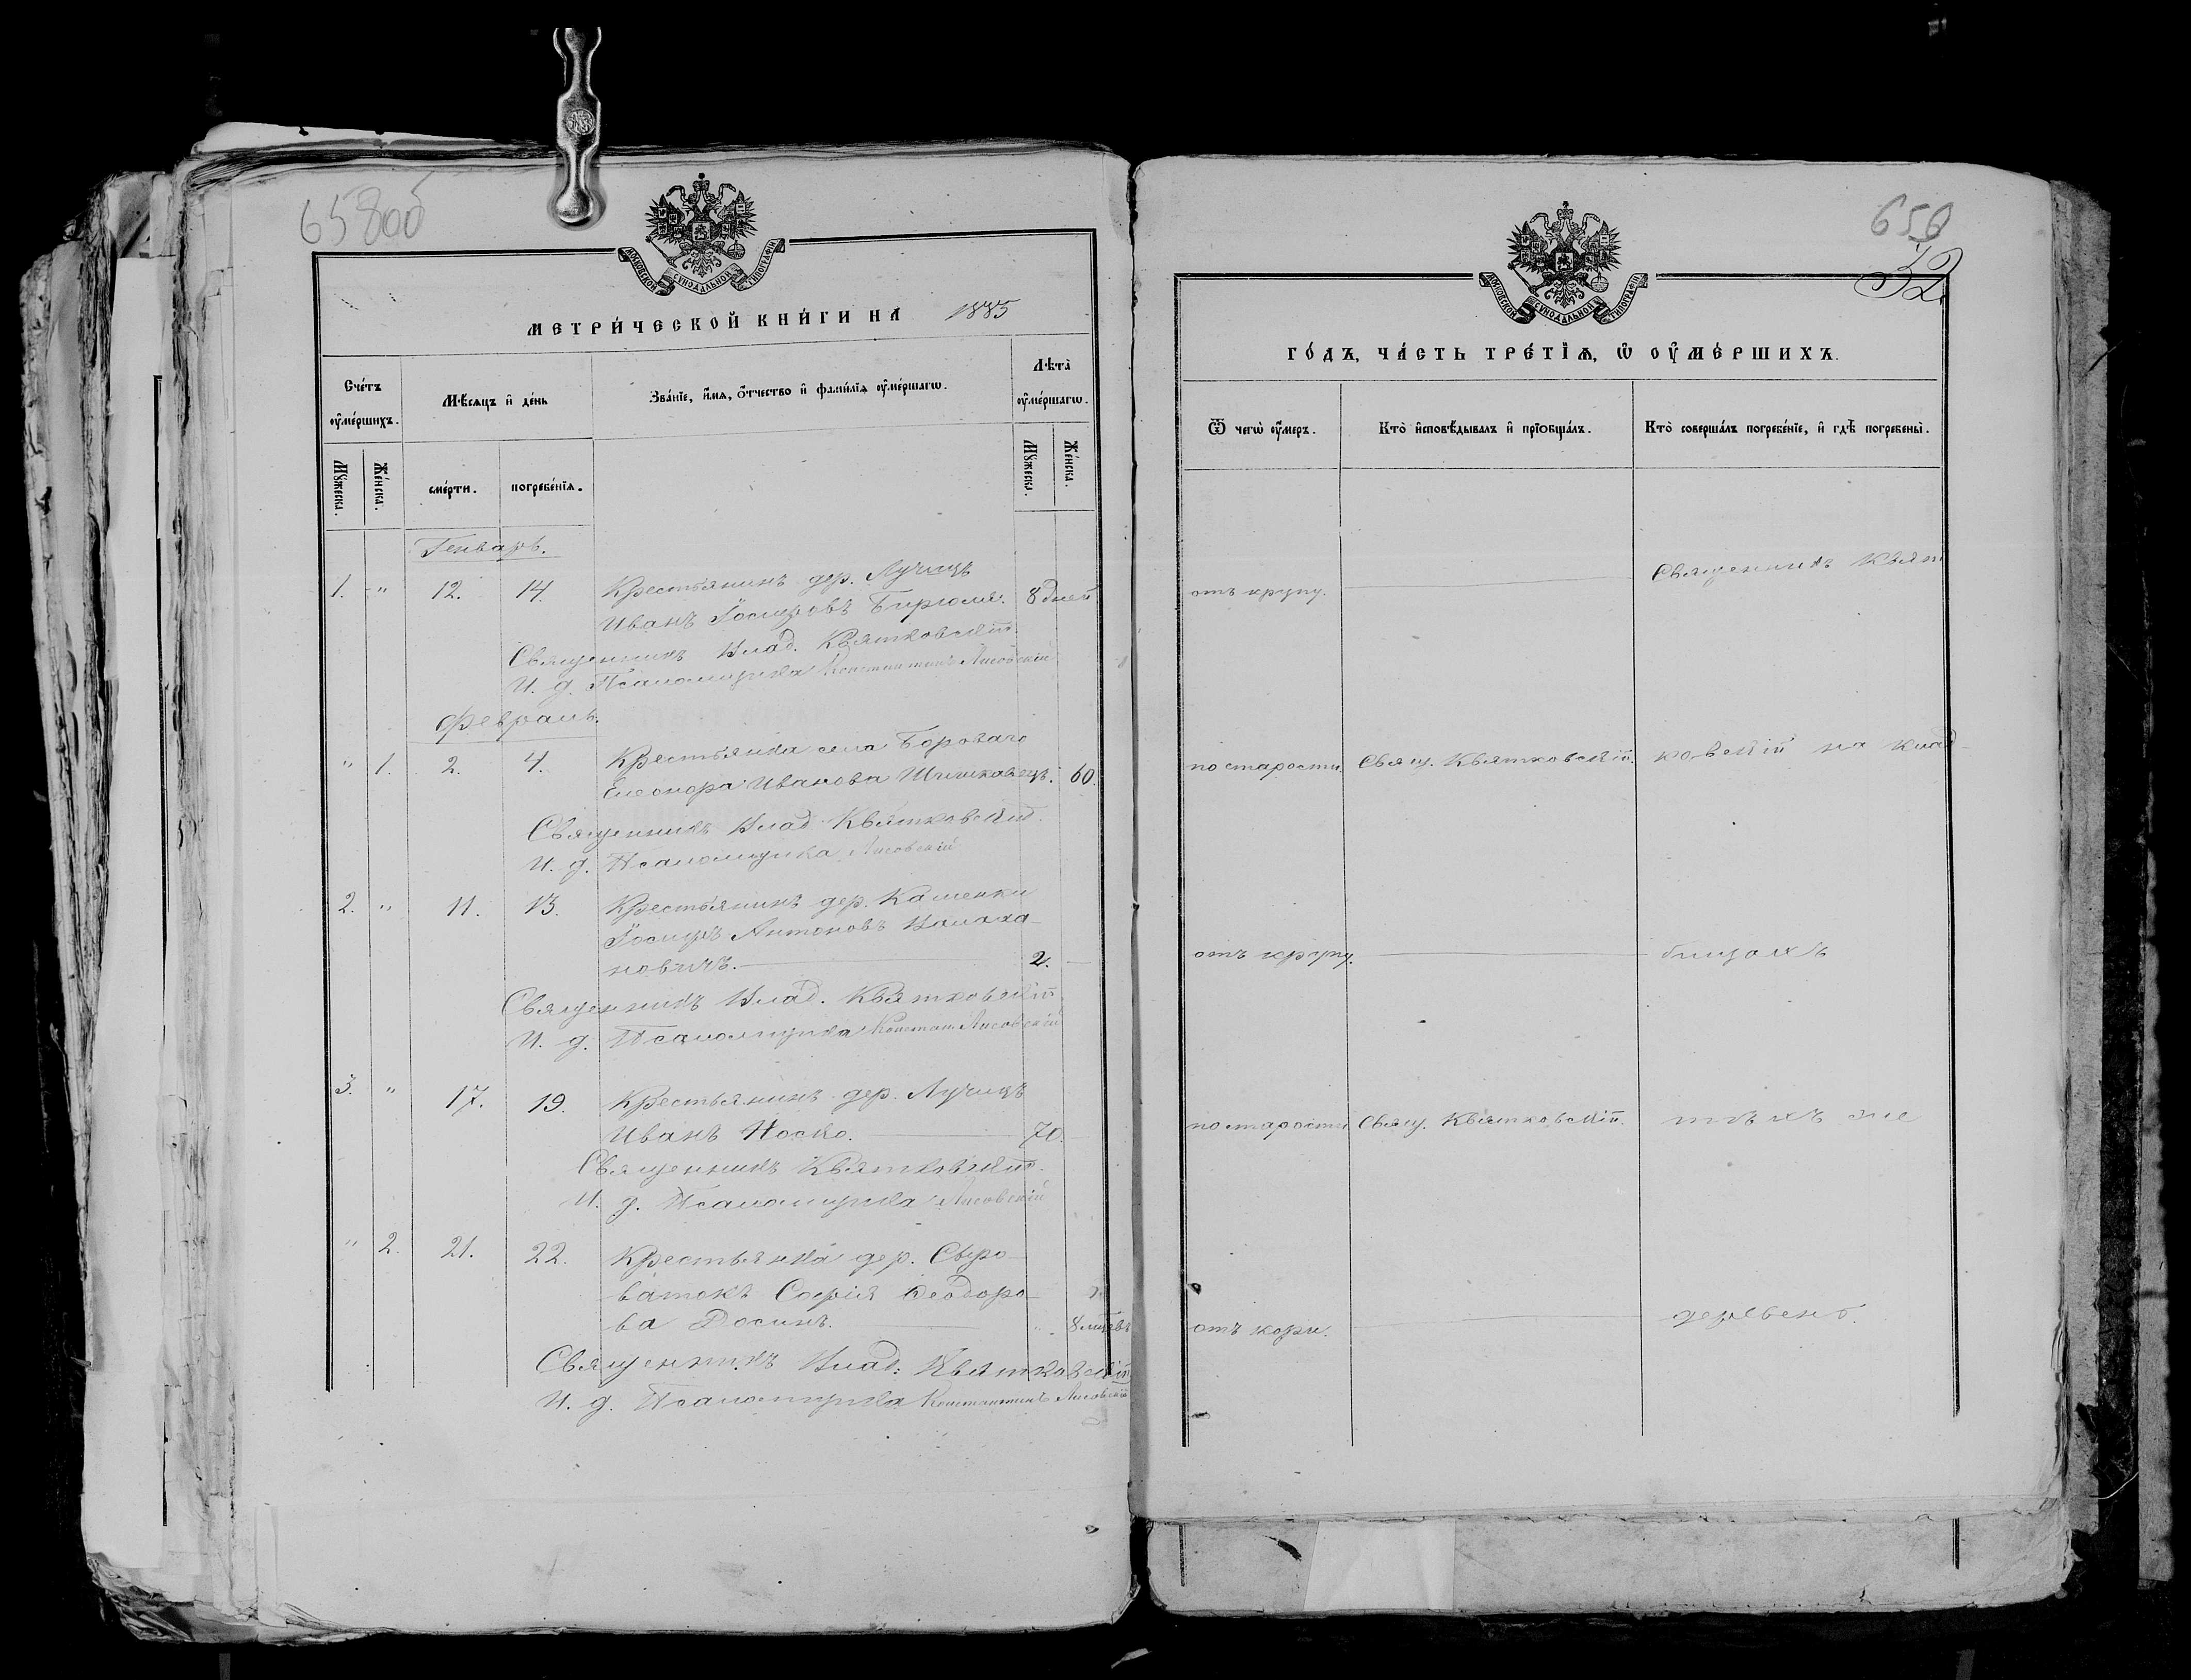 658об
МОСКОВСКОЙ СУНОДАЛЬНОЙ ТИПОГРАФІИ
МЕТРИ́ЧЕСКОЙ КНИ́ГИ НА 1885
Сче́тъ ᲂу҆ме́ршихъ.
Мѣ́сѧцъ и҆ де́нь
Зва́нїе, и҆́мѧ, ѻ҆́тчество и҆ фамѝлїѧ ᲂу҆ме́ршагѡ.
Лѣта̀ ᲂу҆ме́ршагѡ.
Мꙋ́жеска.
Же́нска.
сме́рти.
погребе́нїѧ.
Мꙋ́жеска.
Же́нска.
Генварь.
1. " 12. 14. Крестьянинъ дер. Лучицъ
Иванъ Іосифовъ Бирюля. 8 дней
Священникъ Влад. Квятковскій
И. д. Псаломщика Константинъ Лисовскій
Февраль.
" 1. 2. 4. Крестьянка села Бороваго
Елеонора Иванова 60.
Священникъ Влад. Квятковскій.
И. д. Псаломщика Лисовскій
2. " 11. 13. Крестьянинъ дер. Каменки
Іосифъ Антоновъ Валаха-
новичъ. 2.
Священникъ Влад. Квятковскій
И. д. Псаломщика Констан. Лисовскій
3. " 17. 19. Крестьянинъ дер. Лучицъ
Иванъ Носко. 70.
Священникъ Квятковскій.
И. д. Псаломщика Лисовскій
" 2. 21. 22. Крестьянка дер. Сыро-
ватокъ Софія Феодоро-
ва Досинъ. 8 мцевъ
Священникъ Влад. Квятковскій
И. д. Псаломщика Константинъ Лисовскій
659
52
МОСКОВСКОЙ СУНОДАЛЬНОЙ ТИПОГРАФІИ
ГО́ДЪ, ЧА́СТЬ ТРЕ́ТЇѦ, Ѡ҆ ОУ҆МЕ́РШИХЪ.
Ѿ чегѡ̀ ᲂу҆́меръ.
Кто̀ и҆сповѣ́дывалъ и҆ прїѻбща́лъ.
Кто̀ соверша́лъ погребе́нїе, и҆ гдѣ̀ погребены̀.
отъ крупу. Священникъ Квят
по старости. Свящ. Квятковскій. ковскій на клад-
отъ крупу. бищахъ
по старости Свящ. Квятковскій. тѣхъ же
отъ кори. деревень.